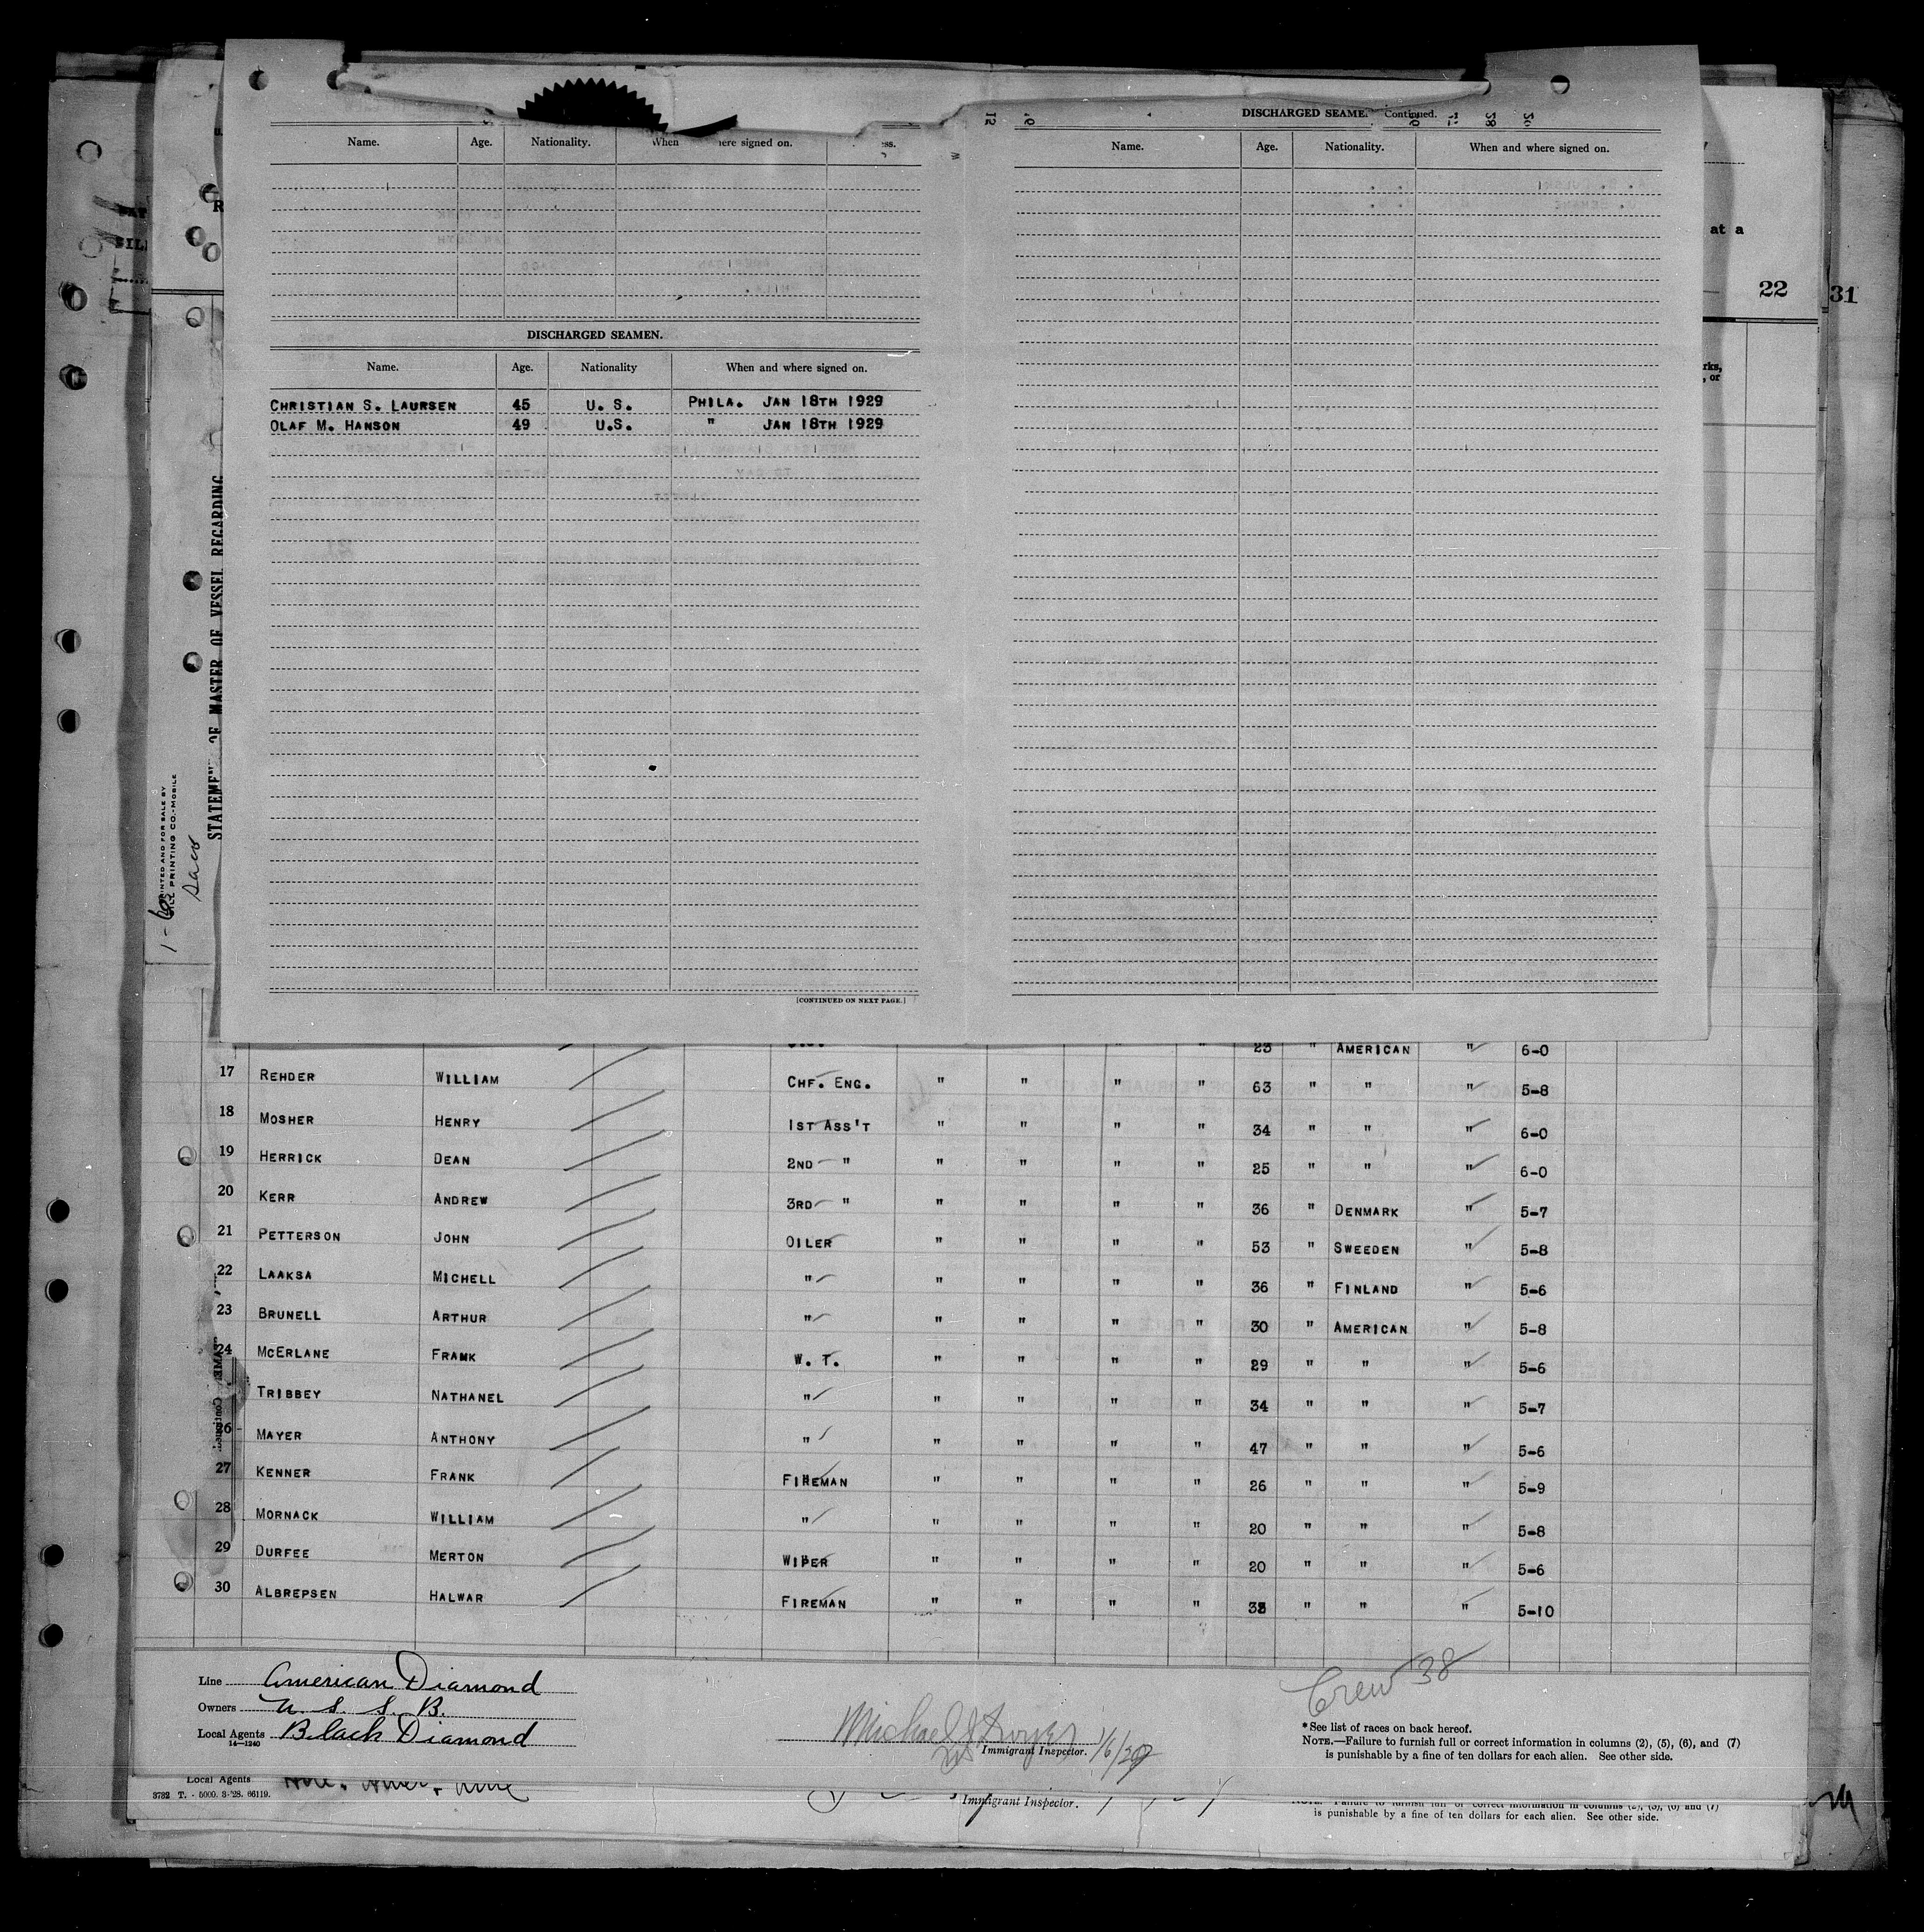 DISCHARGED SEAMEN Continued.
Name. Age. Nationality. When signed on.
Name. Age. Nationality. When and where signed on.
at a
22
31
DISCHARGED SEAMEN.
Name. Age. Nationality When and where signed on.
CHRISTIAN S. LAURSEN 45 U. S. PHILA. JAN 18TH 1929
OLAF M. HANSON 49 U.S. " JAN 18TH 1929
STATEMENT OF MASTER OF VESSEL REGARDING
PRINTING CO.-MOBILE
[CONTINUED ON NEXT PAGE.]
23 " AMERICAN " 6-0
17 REHDER WILLIAM CHF. ENG. " " " " 63 " " " 5-8
18 MOSHER HENRY 1ST ASS'T " " " " 34 " " " 6-0
19 HERRICK DEAN 2ND " " " " " 25 " " " 6-0
20 KERR ANDREW 3RD " " " " " 36 " DENMARK " 5-7
21 PETTERSON JOHN OILER " " " " 53 " SWEEDEN " 5-8
22 LAAKSA MICHELL " " " " " 36 " FINLAND " 5-6
23 BRUNELL ARTHUR " " " " " 30 " AMERICAN " 5-8
24 MCERLANE FRANK W. T. " " " " 29 " " " 5-6
TRIBBEY NATHANEL " " " " " 34 " " " 5-7
26 MAYER ANTHONY " " " " " 47 " " " 5-6
27 KENNER FRANK FIREMAN " " " " 26 " " " 5-9
28 MORNACK WILLIAM " " " " " 20 " " " 5-8
29 DURFEE MERTON WIPER " " " " 20 " " " 5-6
30 ALBREPSEN HALWAR FIREMAN " " " " " " " 5-10
Line American Diamond
Owners U. S. S. B.
Local Agents Black Diamond
14—1240
Michael
Immigrant Inspector.
Crew 38
*See list of races on back hereof.
NOTE.—Failure to furnish full or correct information in columns (2), (5), (6), and (7)
is punishable by a fine of ten dollars for each alien. See other side.
Local Agents
3732 T. - 5000. 3-'28. 66119.
Immigrant Inspector.
is punishable by a fine of ten dollars for each alien. See other side.